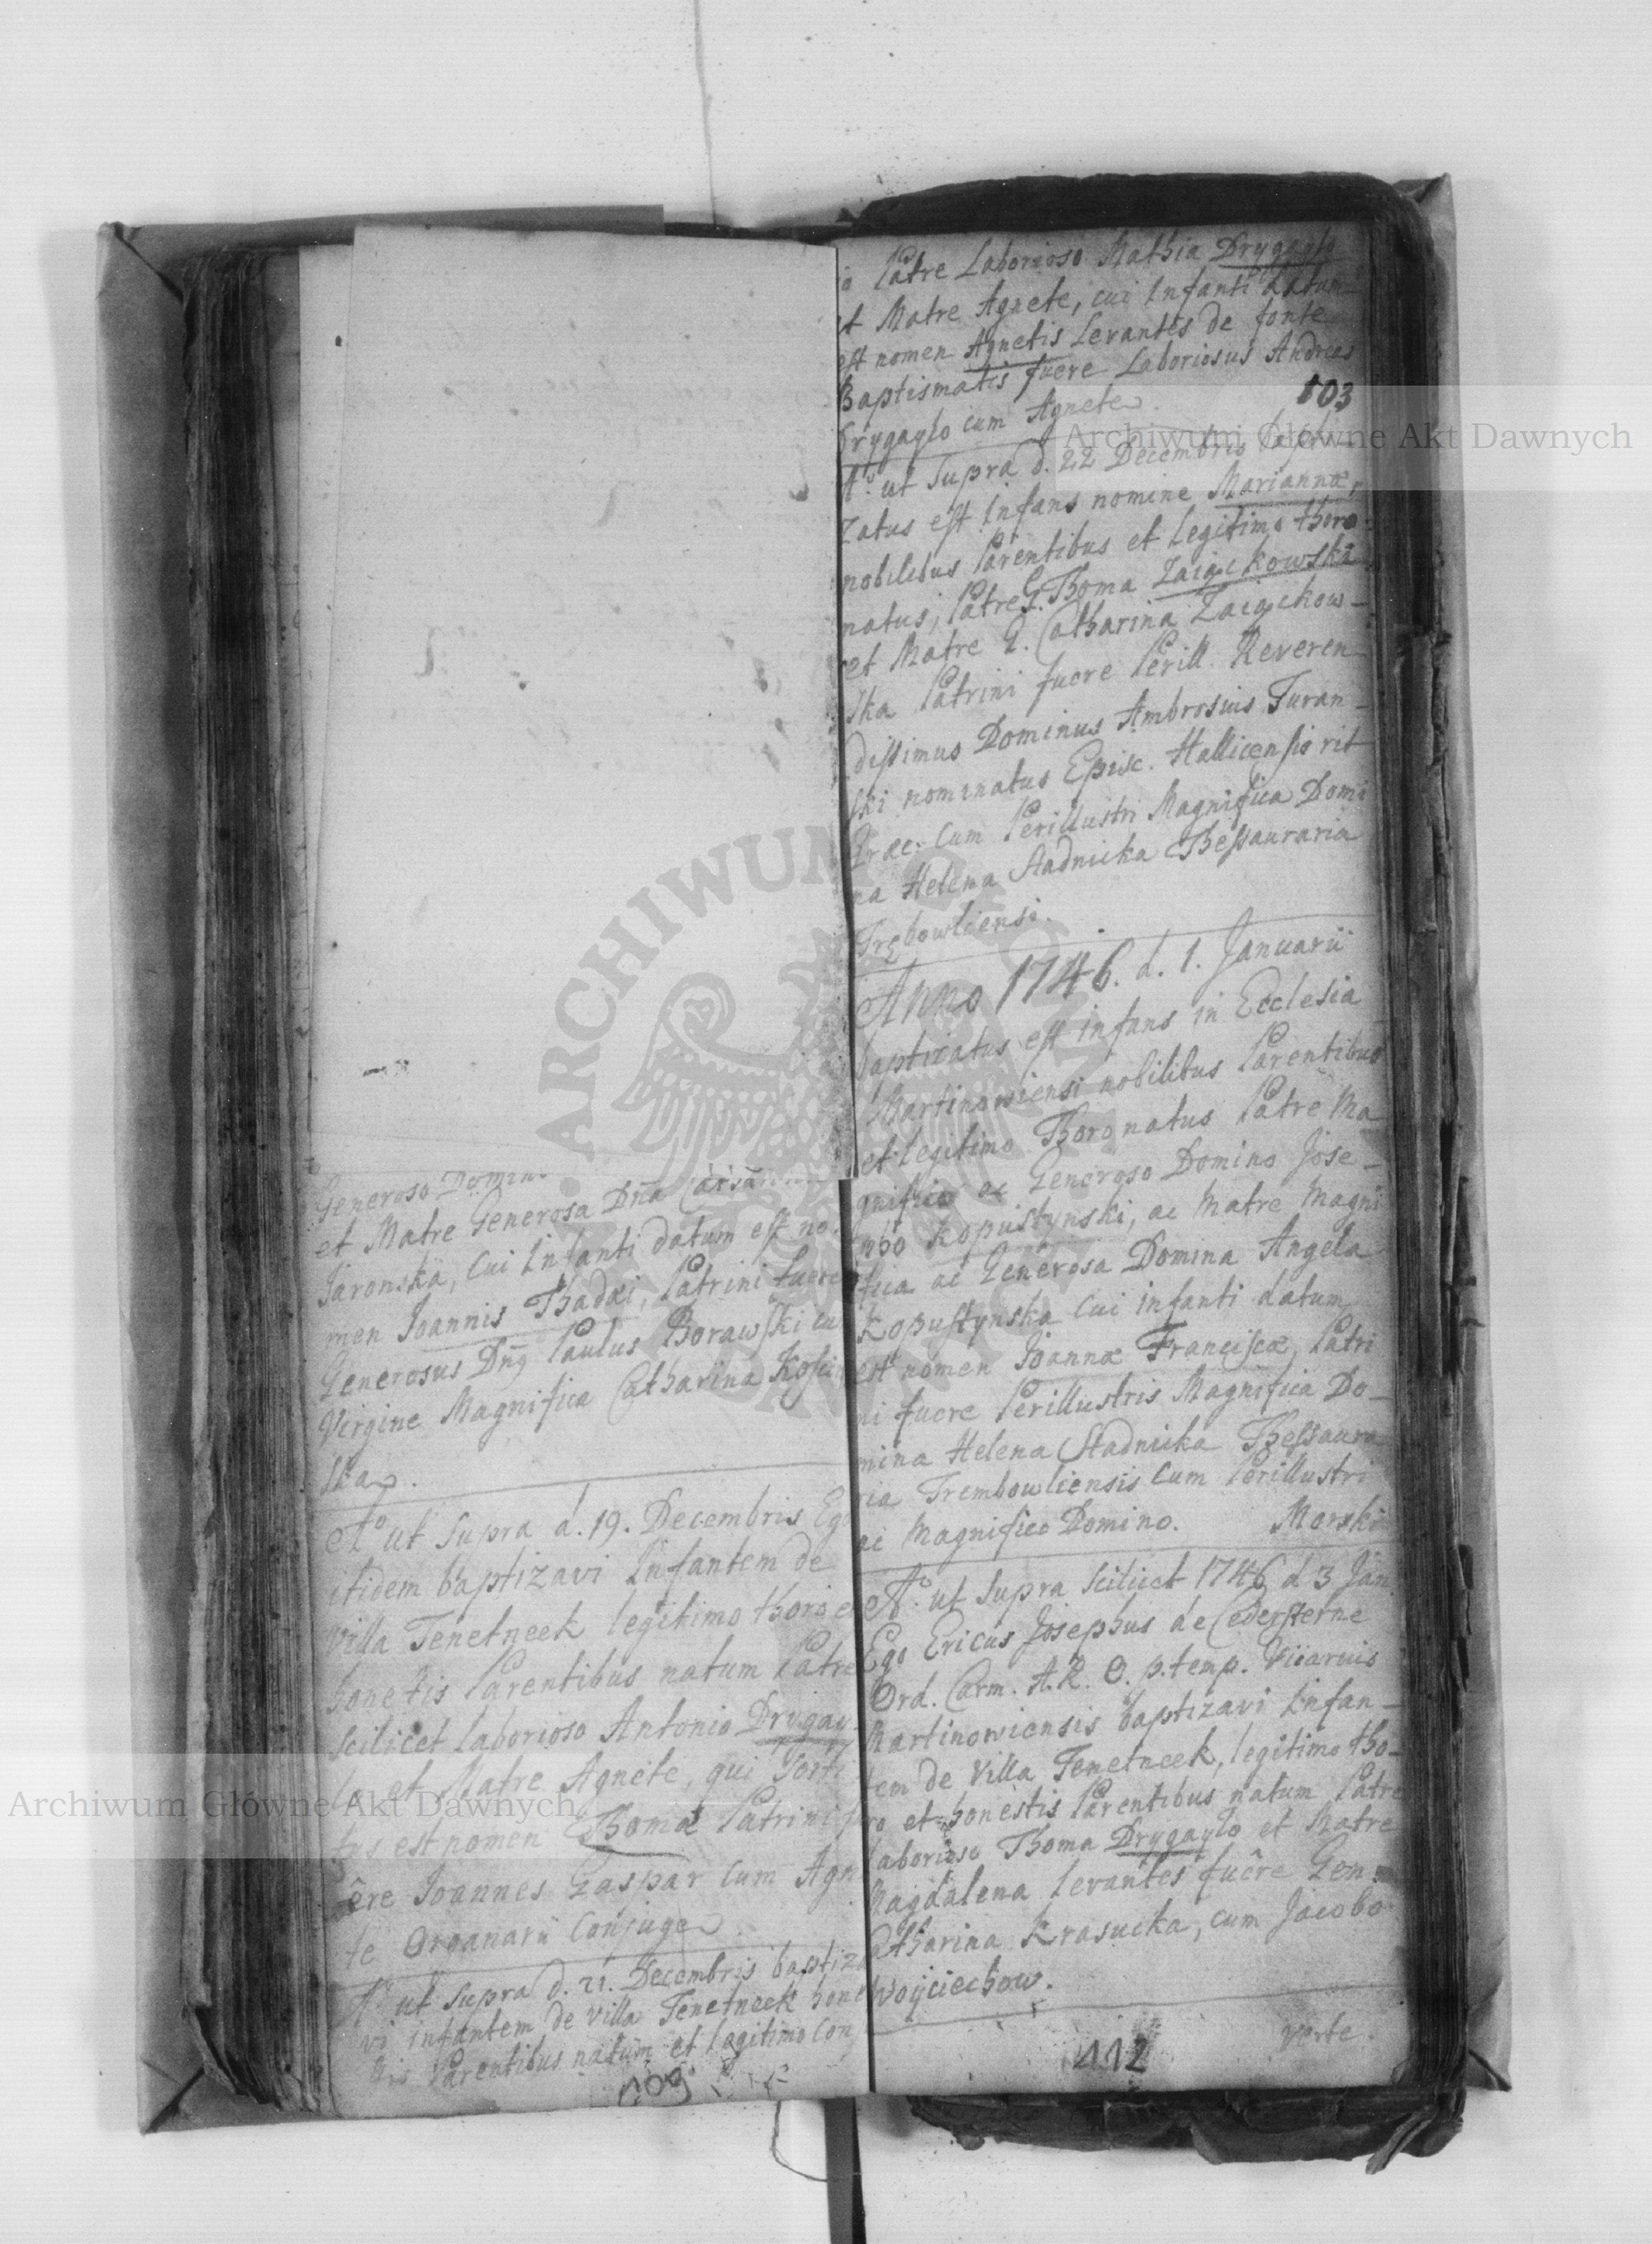 Generoso Domin
et Matre Generosa Dña
Jaronska, Cui Infanti datum est no
men Joannis Thadæi, Patrini fuere
Generosus Dñg Paulus Borawski cu
Virgine Magnifica Catharina Kosin
ska.
Aº ut supra d. 19. Decembris Ego
itidem baptizavi Infantem de
Villa Tenetneek legitimo thoro e
honestis Parentibus natum Patre
scilicet laborioso Antonio Drygay
lo et Matre Agnete, qui
tus est nomen Thomæ Patrini fu
êre Joannes Gaspar cum Agne
te Organarii Conjuge.
Aº ut supra d. 21. Decembris baptiza
vi infantem de villa Tenetneek hone
stis Parentibus natum et legitimo Con
109
o Patre Laborioso Mathia Drygaylo
et Matre Agnete, cui Infanti datum
est nomen Agnetis Levantes de fonte
Baptismatis fuere Laboriosus Andreas
Drygaylo cum Agnete.
103
Aº ut supra d. 22 Decembris bapti
zatus est Infans nomine Mariannæ,
nobilibus Parentibus et legitimo thoro
natus, Patre G. Thoma Zaiączkowski
et Matre G. Catharina Zaiączkow-
ska Patrini fuere Perill. Reveren
dissimus Dominus Ambrosius Turan-
ski nominatus Episc. Hallicensis rit
Græc. cum Perillustri Magnifica Domi
na Helena Stadnicka Thessauraria
Trębowliensi.
Anno 1746. d. 1. Januarii
baptizatus est infans in Ecclesia
Martinowiensi nobilibus Parentibus
et legitimo Thoro natus Patre Ma
gnifico ac Generoso Domino Jose-
pho Kopustynski, ac Matre Magni
fica ac Generosa Domina Angela
Kopustynska cui infanti datum
est nomen Joannæ Franciscæ, Patri
ni fuere Perillustris Magnifica Do-
mina Helena Stadnicka Thessaura
ria Trembowliensis cum Perillustri
ac Magnifico Domino. Morski
Aº ut supra scilicet 1746 d 3 Jan.
Ego Ericus Josephus de Cedersterne
Ord. Carm. A. R. O. p. temp. Vicarius
Martinowiensis baptizavi Infan-
tem de Villa Tenetneek, legitimo tho-
ro et honestis Parentibus natum Patre
laborioso Thoma Drygaylo et Matre
Magdalena levantes fuêre Gen.
Catharina Krasucka, cum Jacobo
Woyciechow.
verte.
112
Archiwum Główne Akt Dawnych
Archiwum Główne Akt Dawnych